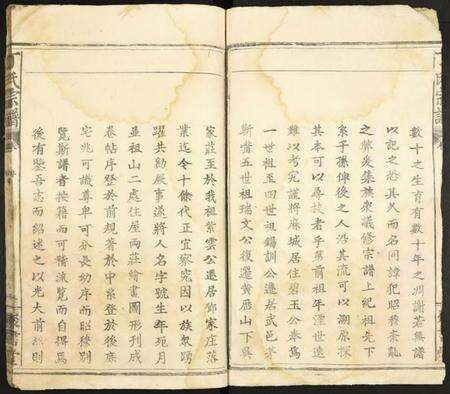 數十之生育有數十年之凋謝若無譜
以記之恐其久而名同諱犯昭穆紊亂
之弊爰集族衆議修宗譜上紀祖先下
系子孫俾後之人沿其流可以溯原探
其本可以尋枝者乎第前祖年湮世遠
難以考究謹將麻城居住碧玉公奉爲
一世祖至四世祖錫訓公遷居武邑茅
斯嘴五世祖瑞文公復遷黃應山下吳
家莊至於我祖紫雲公遷居鄧家庄落
業迄今十餘代正宜察究因以族衆踴
躍共勷厥事遂將人名字號生年死月
並祖山二處住屋兩莊繪畫圖形刊成
卷帖序登於前規著於中系登於後庶
宅兆可識尊卑可分長幼序而昭穆別
覽斯譜者按籍而可稽流覽而自得爲
後有鑒吾志而紹述之以光大前烈則
丁氏宗譜